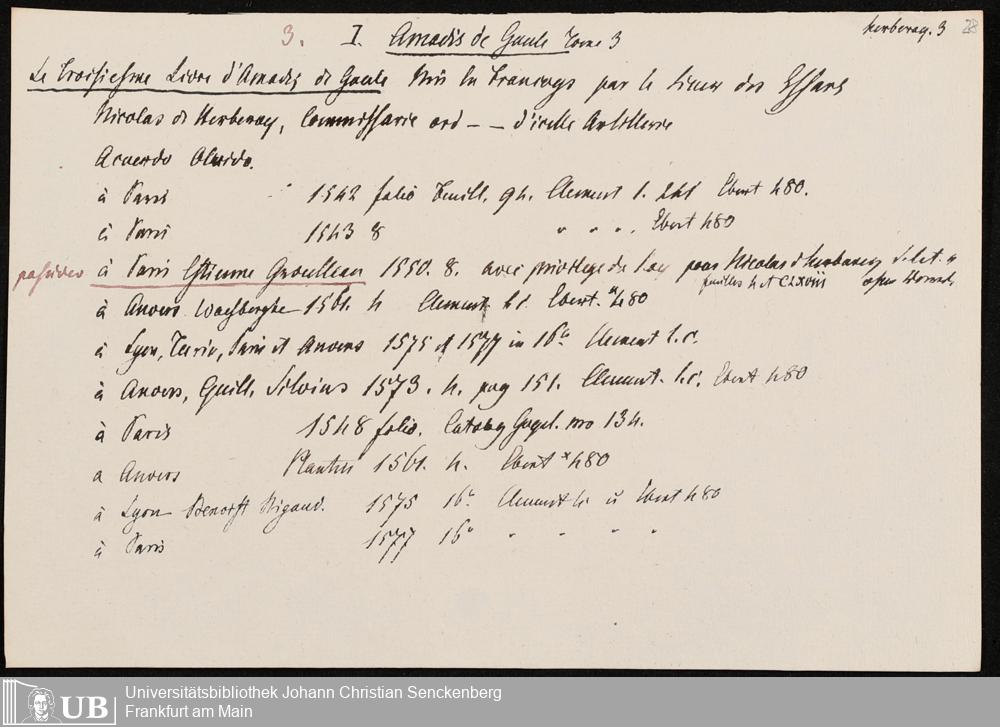 Herberay. 3 28
3. I. Amadis de Gaule Tome 3
Le Troisiesme Livre d'Amadis de Gaule Mis en Francoys par le Sieur des Essars
Nicolas de Herberay, Commissarie ord – – d'icelle Artillerie
Acuerdo Olvido.
à Paris 1542 folio Feuill. 94. Clement 1. 241 Ebert 480.
à Paris 1543 8 " " " . Ebert 480
à Paris Estienne Groulleau 1550. 8. avec privilege du Roy pour Nicolas d'Herberay
feuilles 4 et CLXVIII
à Anvers Waesberghe 1561. 4 Clement l.c. Ebert. *480
à Lyon, Turin, Paris et Anvers 1575 et 1577 in 16° Clement l.c.
à Anvers, Guill. Silvius 1573. 4. pag 151. Clement. l.c. Ebert 480
à Paris 1548 folio. Catalog Gugel. nro 134.
a Anvers Plantin 1561. 4. Ebert *480
à Lyon Benoist Rigaud. 1575 16° Clement u Ebert 480
à Paris 1577 16° " " " "
UB
Universitätsbibliothek Johann Christian Senckenberg
Frankfurt am Main